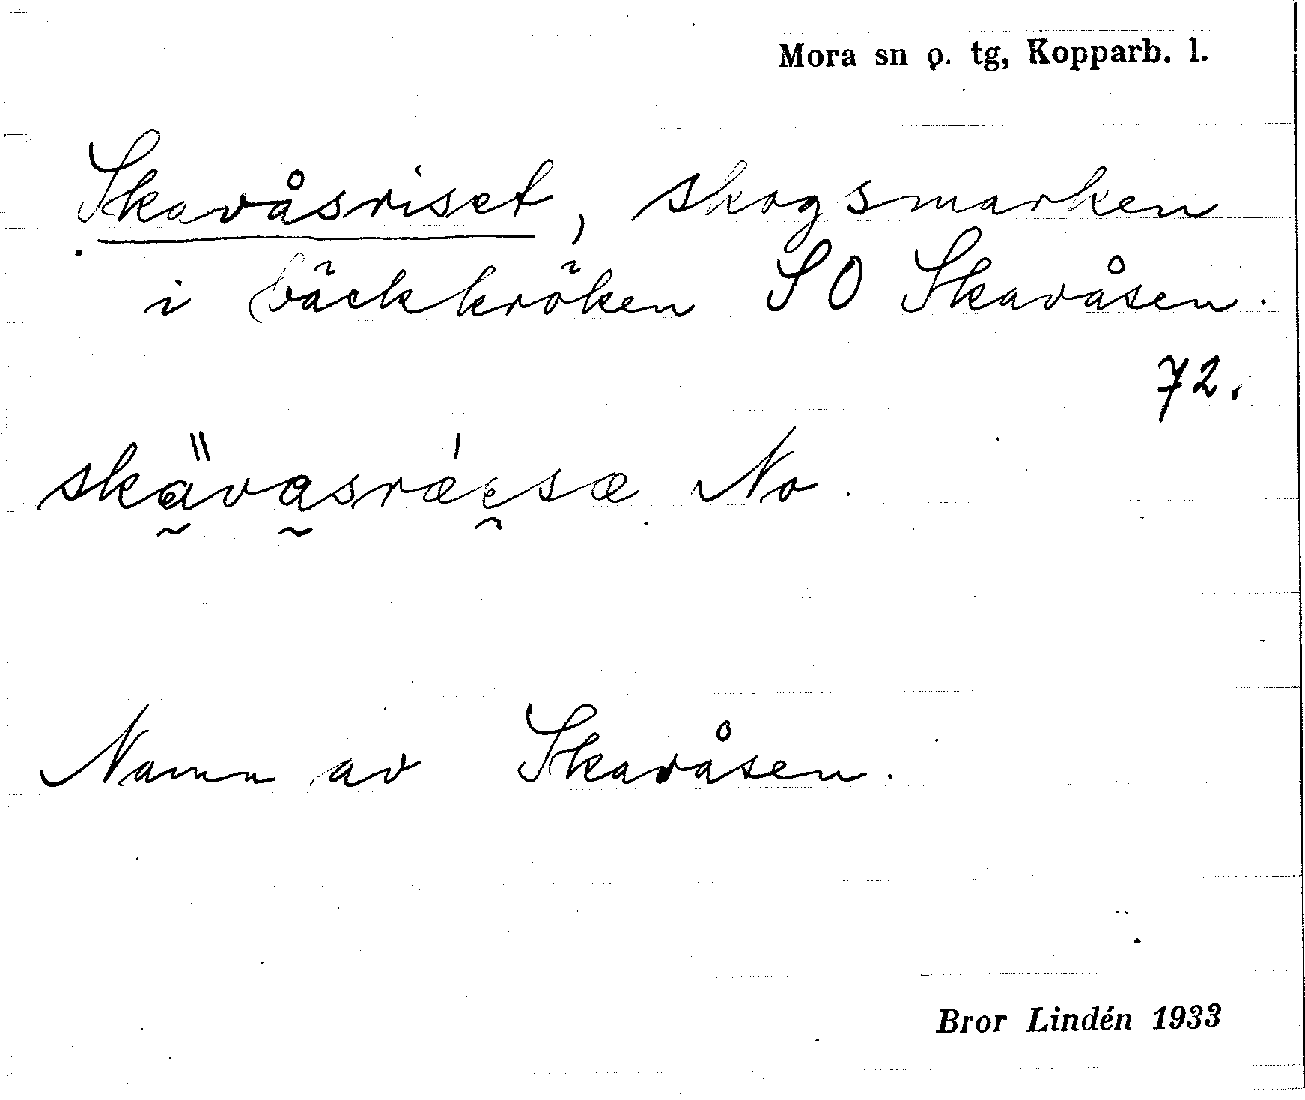 Mora sn o. tg, Kopparb. l.
Skavåsriset, skogsmarken
i bäckkröken SO Skavåsen.
72.
No
Namn av Skavåsen.
Bror Lindén 1933